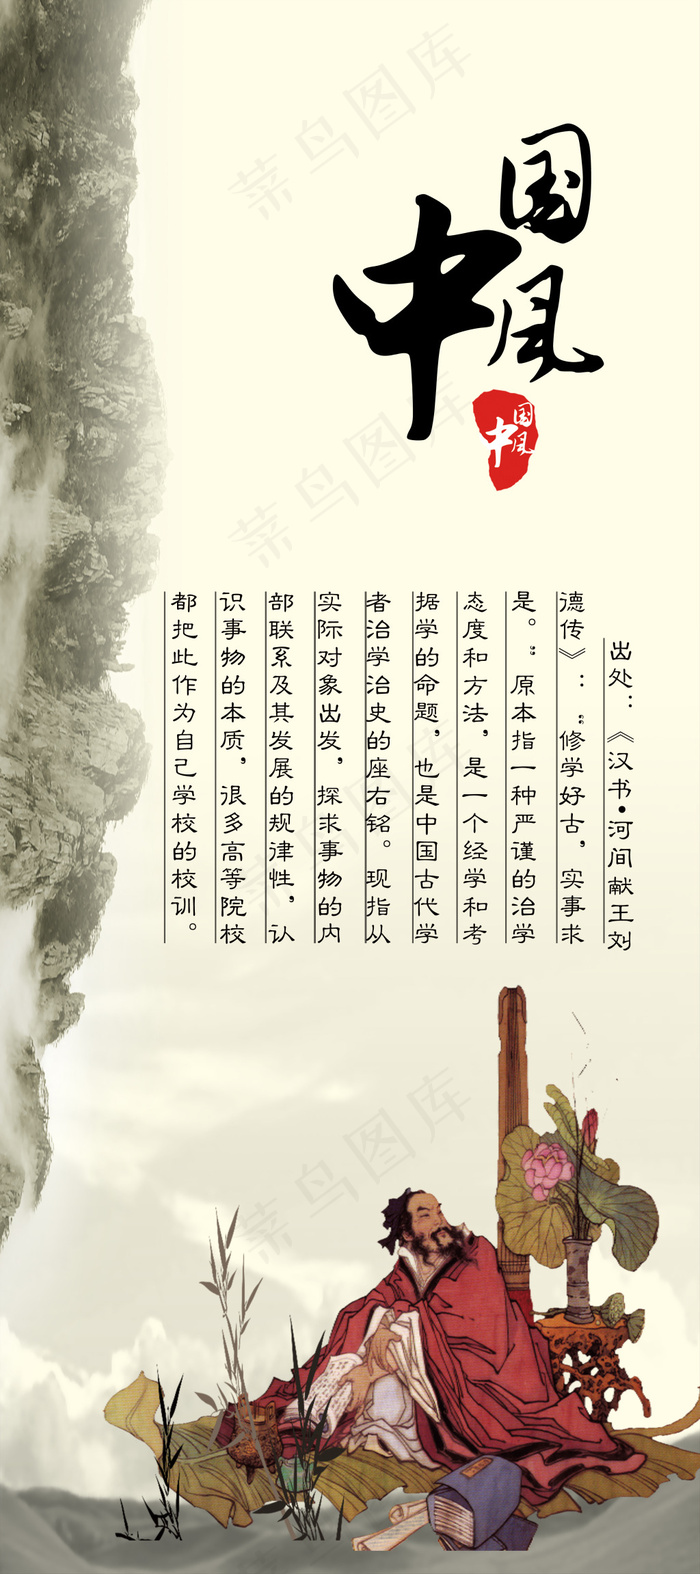 中国风
中国风
出处：《汉书•河间献王刘
德传》：“修学好古，实事求
是。”原本指一种严谨的治学
态度和方法，是一个经学和考
据学的命题，也是中国古代学
者治学治史的座右铭。现指从
实际对象出发，探求事物的内
部联系及其发展的规律性，认
识事物的本质，很多高等院校
都把此作为自己学校的校训。
菜鸟图库
菜鸟图库
菜鸟图库
菜鸟图库